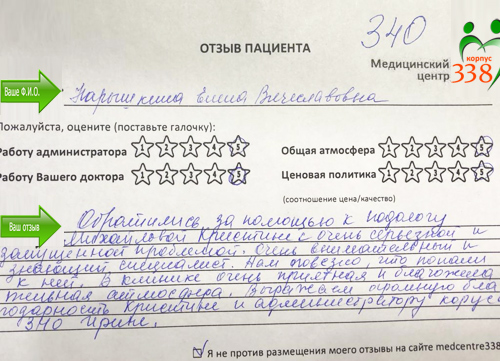 340
ОТЗЫВ ПАЦИЕНТА
Медицинский центр
корпус
338
Ваше Ф.И.О.
Нарышкина Елена Вячеславовна
Пожалуйста, оцените (поставьте галочку):
Работу администратора 1 2 3 4 5
Общая атмосфера 1 2 3 4 5
Работу Вашего доктора 1 2 3 4 5
Ценовая политика 1 2 3 4 5
(соотношение цена/качество)
Ваш отзыв
Обратились за помощью к подологу
Михайловой Кристине с очень серьёзной и
запущенной проблемой. Очень внимательный и
знающий специалист. Нам повезло что попали
к ней. В клинике очень приятная и благожела
тельная атмосфера. Выражаем огромную бла
годарность Кристине и администратору корпус
340 Ирине.
Я не против размещения моего отзыва на сайте medcentre338